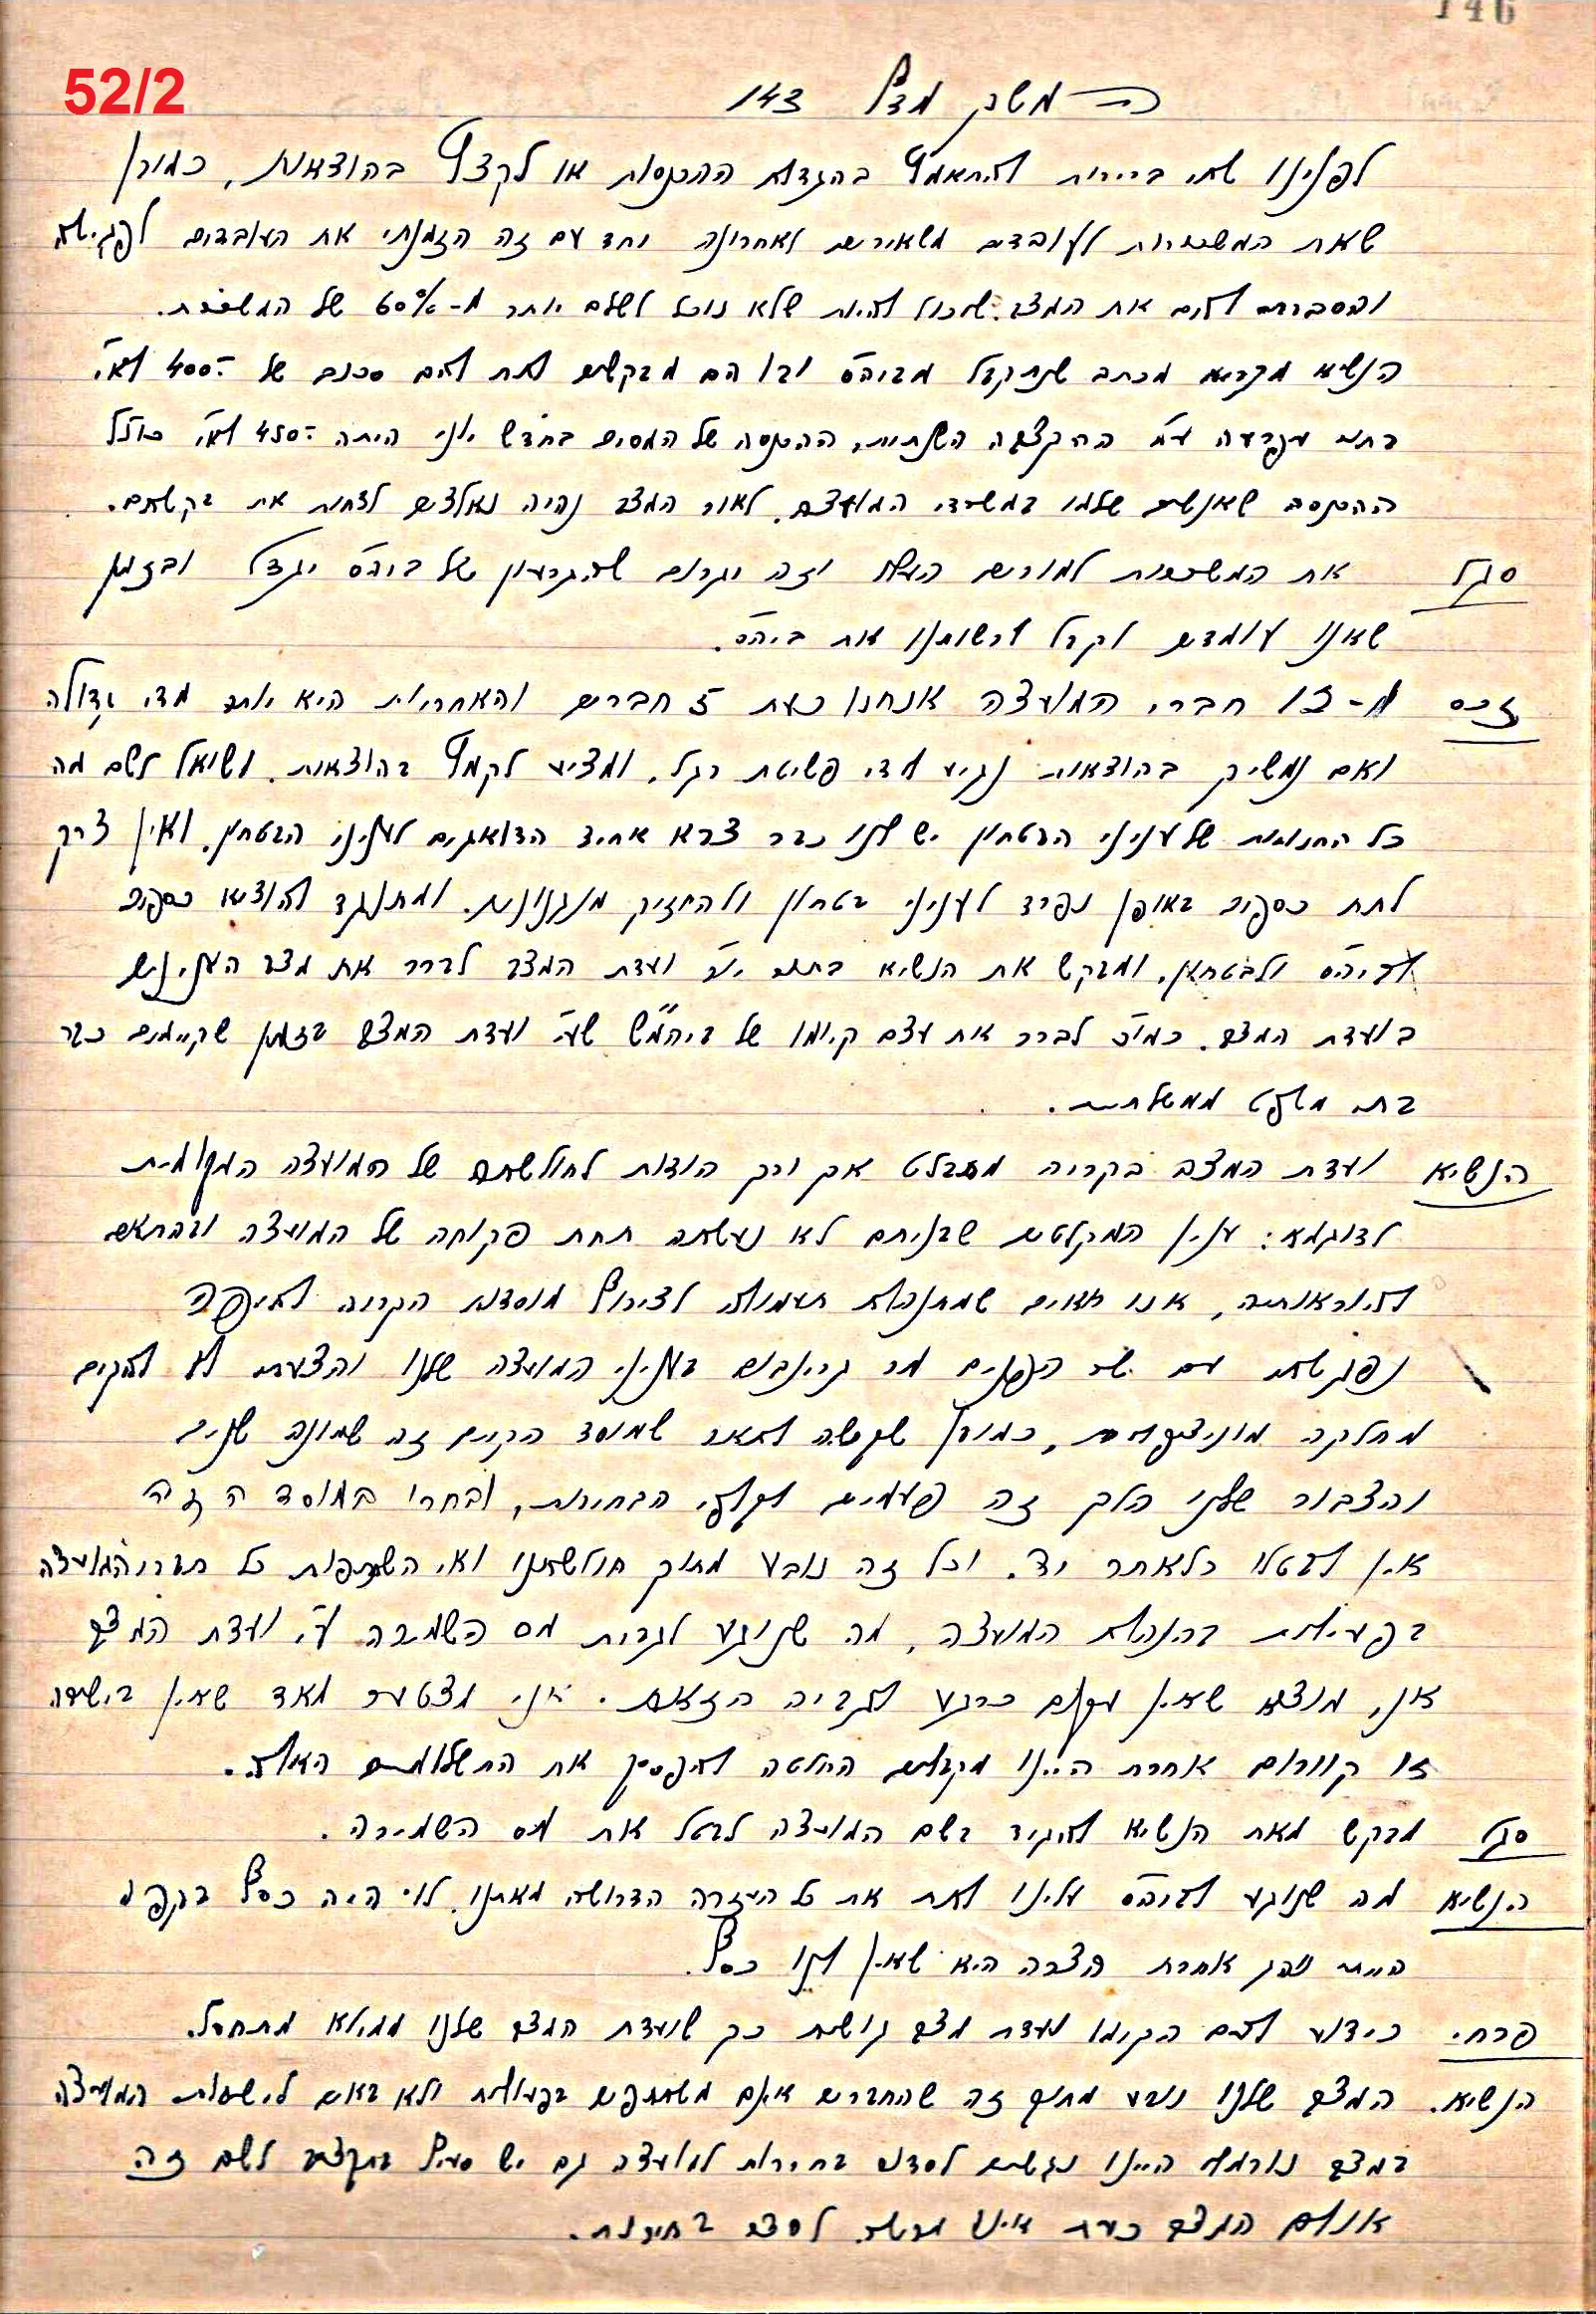 146
52/2
המשך מדף 143
לפנינו שתי ברירות להתאמץ בהגדלת ההכנסות או לקצץ בהוצאות, כמובן
שאת המשכורות לעובדים משאירים לאחרונה יחד עם זה הזמנתי את העובדים לפגישה
והסברתי להם את המצב שיכול להיות שלא נוכל לשלם יותר מ-60% של המשכורת.
הנשיא מקריא מכתב שנתקבל מביה״ס ובו הם מבקשים לתת להם סכום של 400.- לא״י
בתור מפרעה ע״ח ההקצבה השנתית, ההכנסה של המסים בחודש יולי היתה 450.- לא״י כולל
ההכנסה שאנשים שלמו במשרדי המועצה. לאור המצב נהיה נאלצים לדחות את בקשתם.
סגל את המשכורות למורים העלו וזה יגרום שהגרעון של ביה״ס יגדל ובזמן
שאנו עומדים לקבל לרשותנו את ביה״ס.
זכס מ-12 חברי המועצה אנחנו כעת 5 חברים והאחריות היא יותר מדי גדולה
ואם נמשיך בהוצאות נגיע לידי פשיטת רגל. ומציע לקמץ בהוצאות. ושואל לשם מה
כל החגיגות של עניני הבטחון יש לנו כבר צבא אחיד הדואגים לעניני הבטחון. ואין צורך
לתת כספים באופן נפרד לעניני בטחון ולהחזיק מנגנונים. ומתנגד להוציא כספים
לביה״ס ולבטחון. ומבקש את הנשיא בתור יו״ר ועדת המצב לברר את מצב הענינים
בועדת המצב. כמו״כ לברר את עצם קיומו של ביהמ״ש שע״י ועדת המצב בזמן שקיימים כבר
בתי משפט ממשלתיים.
הנשיא ועדת המצב בקריה מתבלט אך ורק הודות לחולשתה של המועצה המקומית
לדוגמא: ענין המקלטים שבניתם לא נעשתה תחת פקוחה של המועצה ובהתאם
להוראותיה, אנו רואים שמתנהלת תעמולה לצירוף מוסדות הקריה לחיפה
נפגשתי עם שר הפנים מר גרינבוים בעניני המועצה שלנו והצעתי לו להקים
מחלקה מוניצפלית, כמובן שקשה לתאר שמוסד הקיים זה שמונה שנים
והצבור שלנו הלך זה פעמים לקלפי הבחירות, ובחרו במוסד הזה
אין לבטלו כלאחר יד. וכל זה נובע מתוך חולשתנו ואי השתתפות כל חברי המועצה
בפעילות בהנהלת המועצה, מה שנוגע לגבית מס השמירה ע״י ועדת המצב
אני מוצא שאין מקום כרגע לגביה הזאת. אני מצטער מאד שאין בישיבה
זו קוורום אחרת היינו מקבלים החלטה להפסיק את התשלומים האלה.
סגל מבקש מאת הנשיא להגיד בשם המועצה לבטל את מס השמירה.
הנשיא מה שנוגע לביה״ס עלינו לתת את כל העזרה הדרושה מאתנו. לוי היה כסף בקופה
הייתי נוהג אחרת הצרה היא שאין לנו כסף.
פרחי כידוע לכם הקימו ועדת מצב גושית כך שועדת המצב שלנו ממילא מתחסל.
הנשיא. המצב שלנו נובע מתוך זה שהחברים אינם משתתפים בפעולות ולא באים לישיבות המועצה
במצב נורמלי היינו נגשים לסדור בחירות למועצה גם יש סעיף בתקציב לשם זה
אולם המצב כעת אינו מרשה לסדר בחירות.